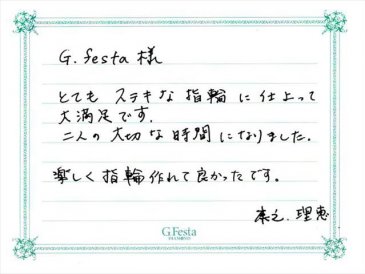 G. festa 様
とても ステキな 指輪 に 仕上って
大満足です.
二人の 大切 な 時間 に なりました.
楽しく 指輪 作れて 良かったです。
理恵
G.Festa
DIAMOND